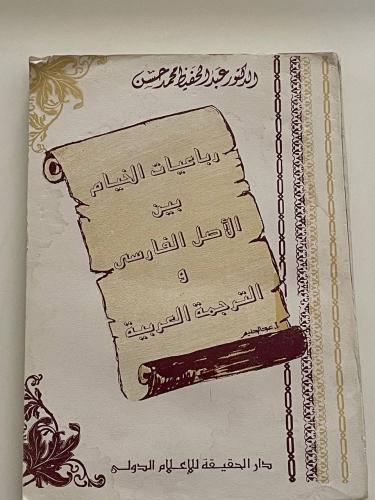 الدكتور عبد الحفيظ محمد حسن
رباعيات الخيام
بين
الأصل الفارسى
و
الترجمة العربية
دار الحقيقة للإعلام الدولى